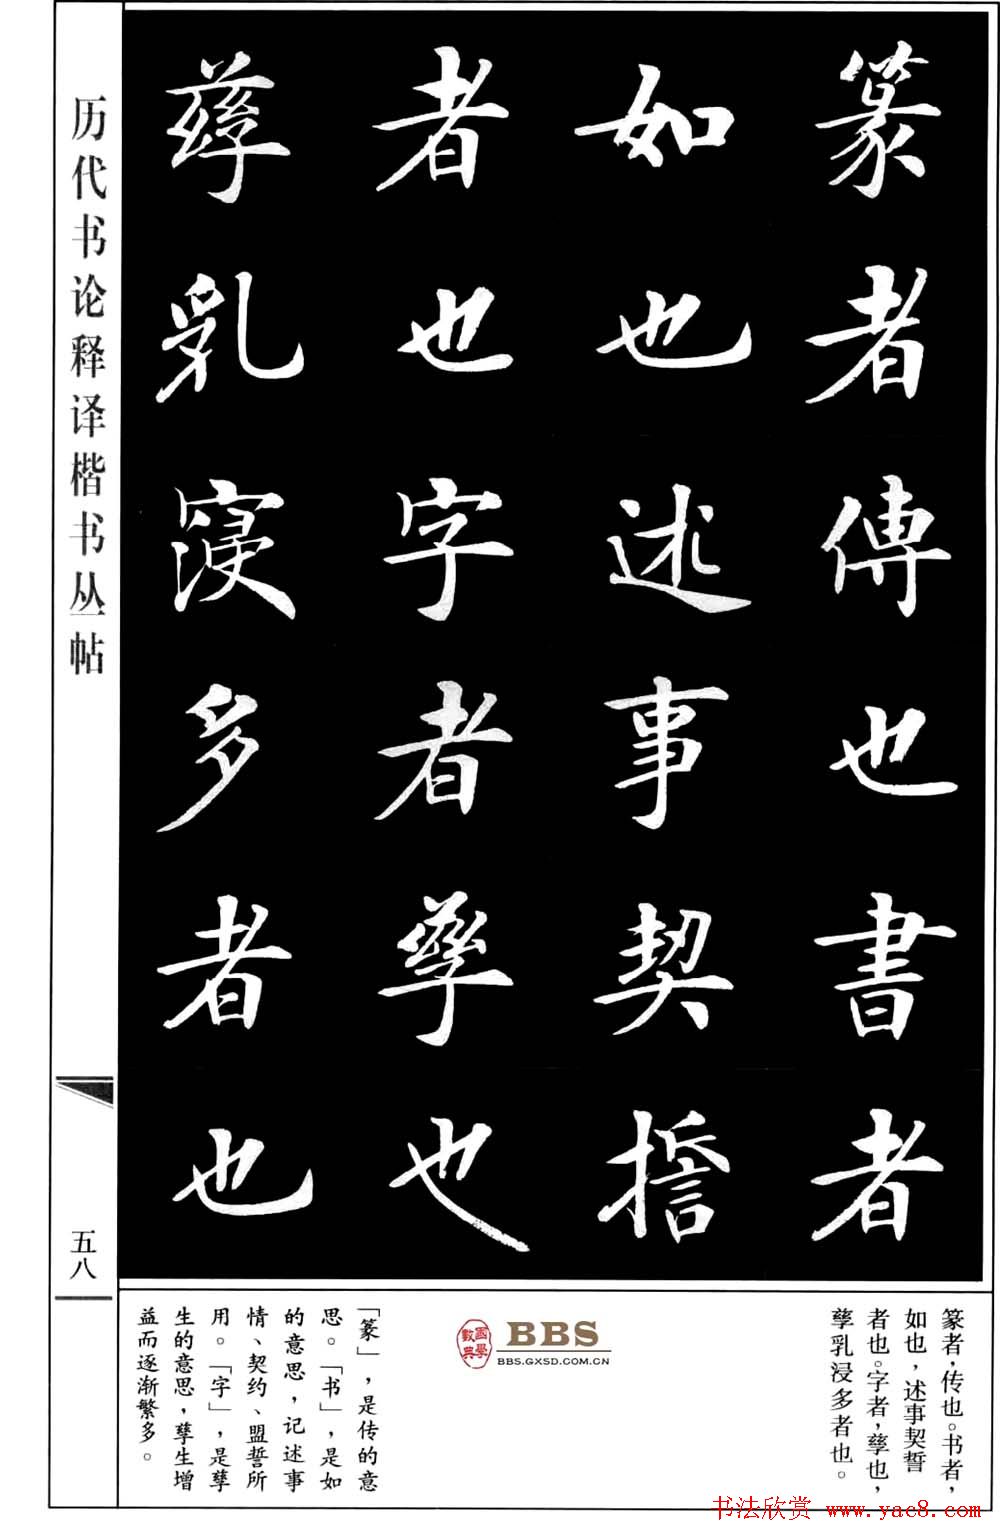 历代书论释译楷书丛帖
五八
篆者傳也書者
如也述事契誓
者也字者孳也
孳乳寖多者也
篆者，传也。书者，
如也，述事契誓
者也。字者，孳也，
孳乳浸多者也。
國學
數典
BBS
BBS.GXSD.COM.CN
「篆」，是传的意
思。「书」，是如
的意思，记述事
情、契约、盟誓所
用。「字」，是孳
生的意思，孳生增
益而逐渐繁多。
书法欣赏 www.yac8.com